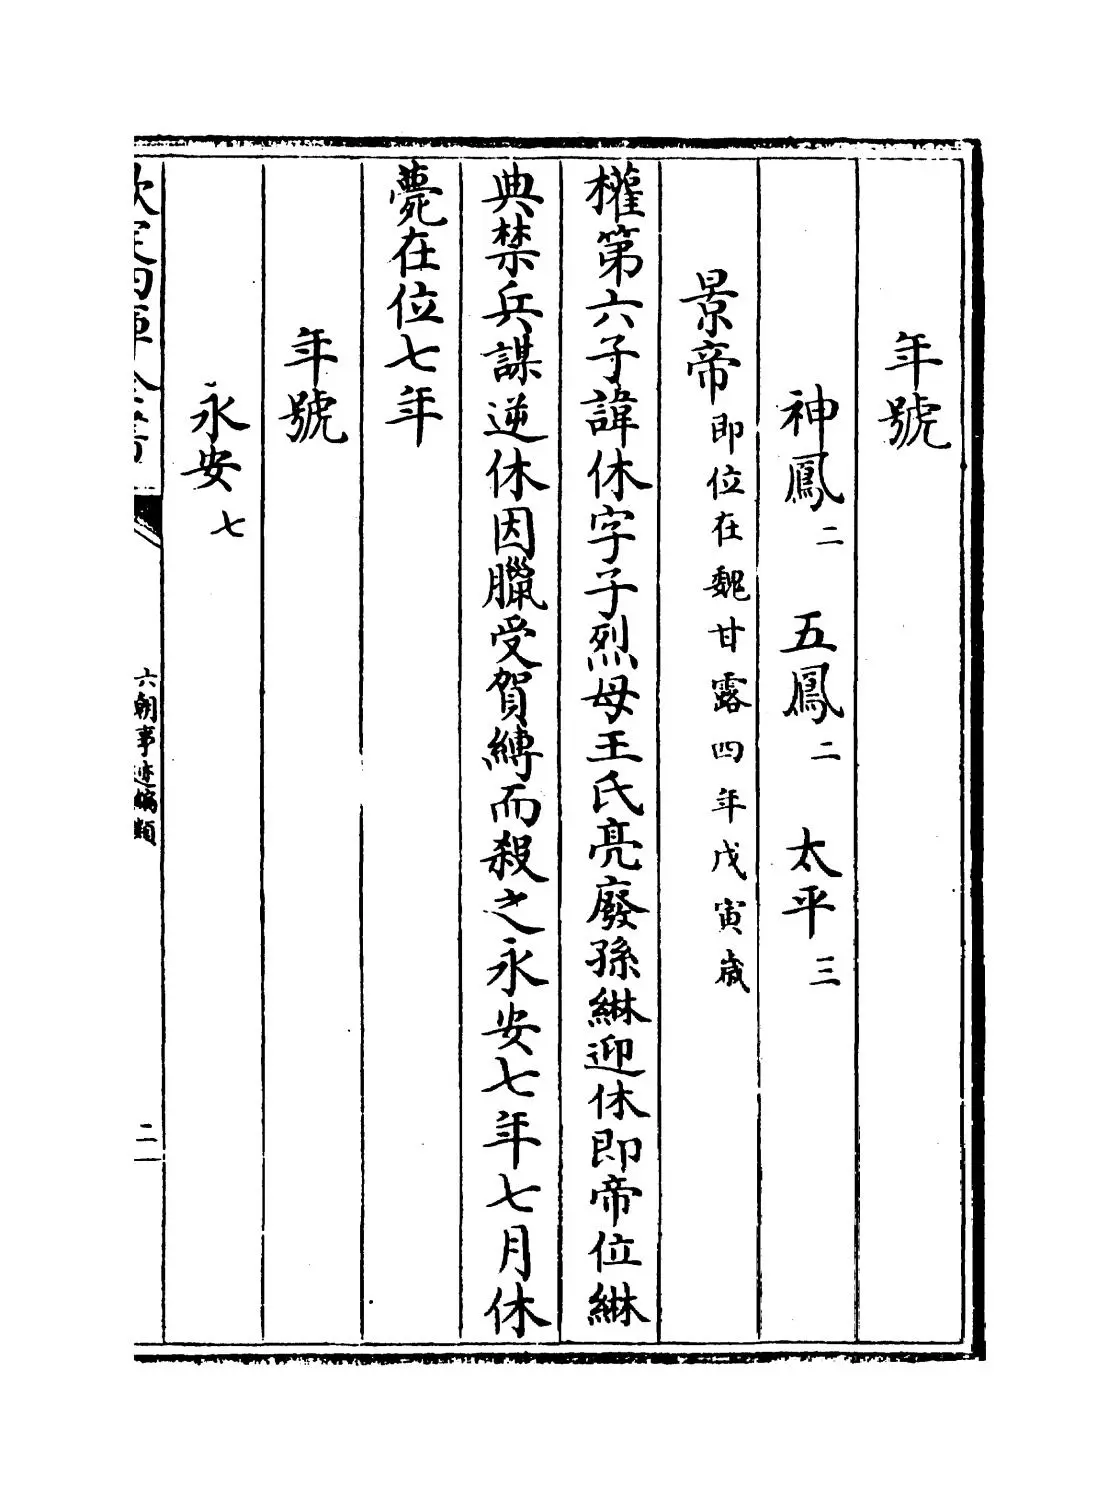 年號
神鳳二 五鳳二 太平三
景帝即位在魏甘露四年戊寅歲
權第六子諱休字子烈母王氏亮廢孫綝迎休即帝位綝
典禁兵謀逆休因臘受賀縛而殺之永安七年七月休
薨在位七年
年號
永安七
欽定四庫全書
六朝事迹編類
二